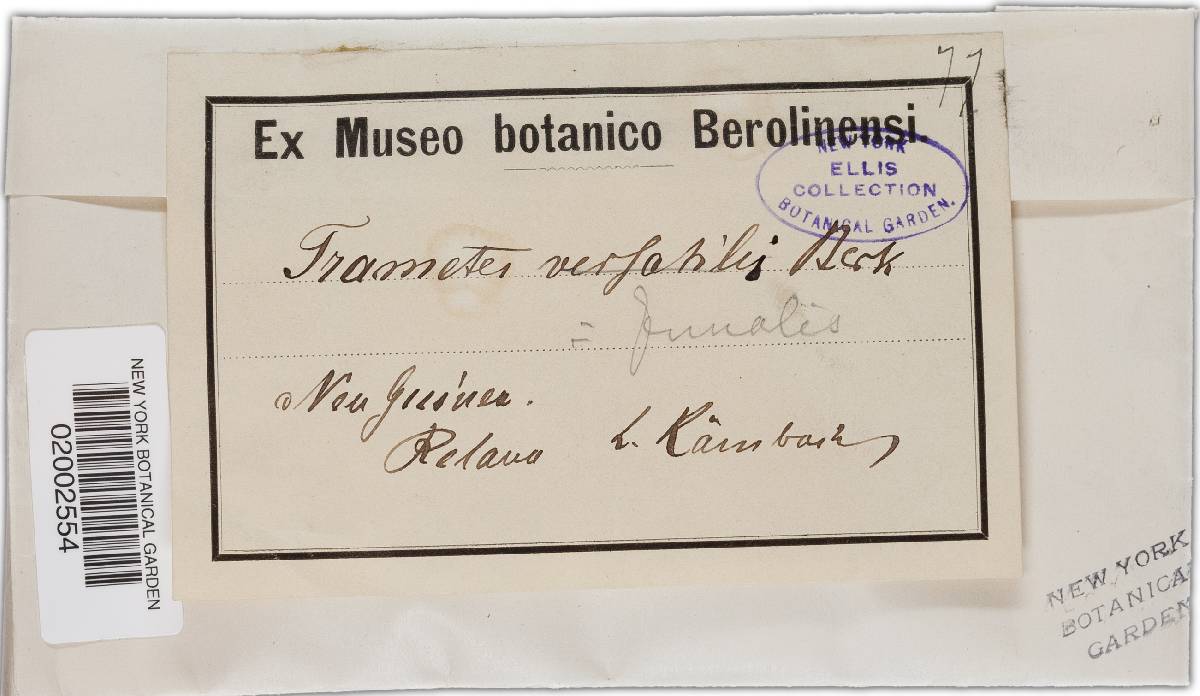 77
Ex Museo botanico Berolinensi.
NEW YORK
ELLIS
COLLECTION
BOTANICAL GARDEN.
Trametes versatilis Berk
=
Neu Guinea.
Relana L. Kärnbach
NEW YORK BOTANICAL GARDEN
02002554
NEW YORK
BOTANICAL
GARDEN